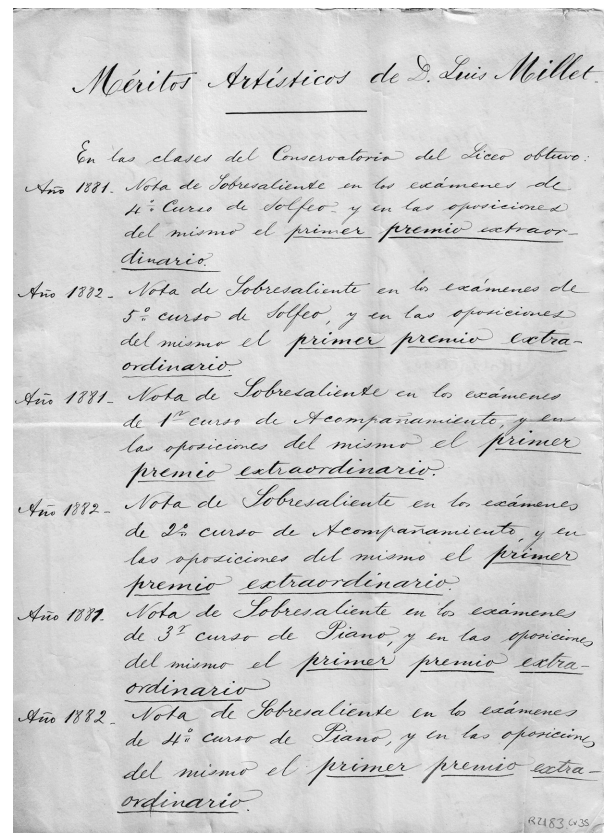 Méritos Artísticos de D. Luis Millet.
En las clases del Conservatorio del Liceo obtuvo:
Año 1881. Nota de Sobresaliente en los exámenes de
4º Curso de Solfeo y en las oposiciones
del mismo el primer premio extraor-
dinario.
Año 1882 - Nota de Sobresaliente en los exámenes de
5º curso de Solfeo, y en las oposiciones
del mismo el primer premio extra-
ordinario.
Año 1881 - Nota de Sobresaliente en los exámenes
de 1r curso de Acompañamiento, y en
las oposiciones del mismo el primer
premio extraordinario.
Año 1882 - Nota de Sobresaliente en los exámenes
de 2º curso de Acompañamiento, y en
las oposiciones del mismo el primer
premio extraordinario.
Año 1881. Nota de Sobresaliente en los exámenes
de 3r curso de Piano, y en las oposiciones
del mismo el primer premio extra-
ordinario
Año 1882 - Nota de Sobresaliente en los exámenes
de 4º curso de Piano, y en las oposiciones
del mismo el primer premio extra-
ordinario.